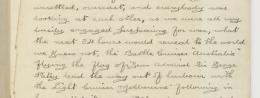 unsettled, overcast, and everybody was
looking at each other, as we were all very
busily engaged preparing for war, what
the next 24 hours would reveal to the world
we knew not, the Battle Cruiser Australia
flying the flag of Rear Admiral Sir George
Patey lead the way out of harbour with
the Light Cruiser Melbourne following in